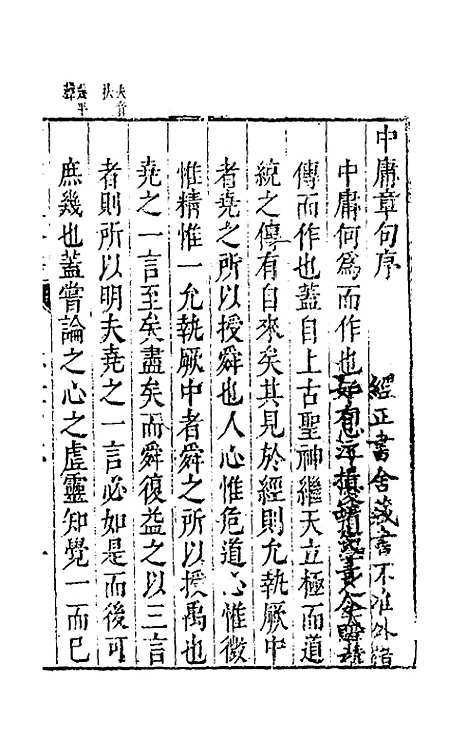 中庸章句序
經正書舍藏書不准外借
中庸何為而作也
如有
傳而作也蓋自上古聖神繼天立極而道
統之傳有自來矣其見於經則允執厥中
者堯之所以授舜也人心惟危道心惟微
惟精惟一允執厥中者舜之所以授禹也
堯之一言至矣盡矣而舜復益之以三言
夫音
扶
者則所以明夫堯之一言必如是而後可
幾平
聲
庶幾也蓋嘗論之心之虛靈知覺一而已